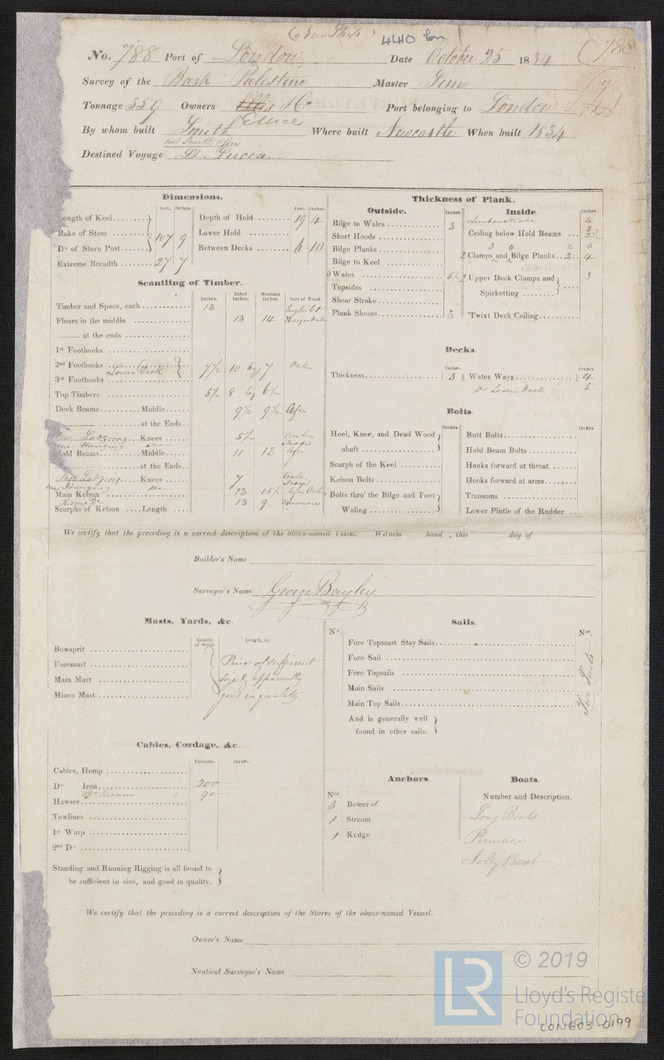 (New Ship) 440 Lon
No. 788 Port of London Date October 25 1834 (788
Survey of the Bark Palestine Master Sim
Tonnage 329 Owners Ellice Port belonging to London
By whom built Smith Where built Newcastle When built 1834
Destined Voyage St. Lucia
Dimensions.
Feet. Inches.
Length of Keel
Rake of Stem
Do. of Stern Post 107 9
Extreme Breadth 27 7
Depth of Hold 19 4
Lower Hold
Between Decks 6 10
Scantling of Timber.
Inches. Sided Inches. Moulded Inches. Sort of Wood.
Timber and Space, each 13
Floors in the middle 13 14
at the ends
1st Foothooks
2nd Foothooks Lower Deck 7½ 10 by 7 Oak
3rd Foothooks
Top Timbers 5½ 8 by 6½
Deck Beams Middle 9½ 9½ Afn
at the Ends
Iron Lodging Knees 5½
Hanging
Hold Beams Middle 11 12 Afn
at the Ends
Iron Lodging Knees 7
Hanging Do
Main Kelson 13 15½
13 9
Scarphs of Kelson Length
Thickness of Plank.
Outside.
Inches.
Bilge to Wales 3
Short Hoods
Bilge Planks
Bilge to Keel
Wales 5½
Topsides
Shear Strake
Plank Shears 3
Inside.
Inches.
Limber Strake 4
Ceiling below Hold Beams
Clamps and Bilge Planks 4
Upper Deck Clamps and 3
Spirketting
'Twixt Deck Ceiling
Decks.
Inches. Inches.
Thickness 3 Water Ways 4
Do Lower Deck 3
Bolts.
Inches. Inches.
Heel, Knee, and Dead Wood
abaft
Scarph of the Keel
Kelson Bolts
Bolts thro' the Bilge and Foot
Waling
Butt Bolts
Hold Beam Bolts
Hooks forward at throat
Hooks forward at arms
Transoms
Lower Pintle of the Rudder
We certify that the preceding is a correct description of the above-named Vessel. Witness hand, this day of
Builder's Name
Surveyor's Name George Bayley
Masts, Yards, &c.
Quality of Wood. Length, &c.
Bowsprit
Foremast
Main Mast
Mizen Mast
Pine of sufficient
size & apparently
good in quality
Sails.
No. No.
Fore Topmast Stay Sails
Fore Sail
Fore Topsails
Main Sails
Main Top Sails
And is generally well
found in other sails.
Two Suits
Cables, Cordage, &c.
Fathoms. Inches.
Cables, Hemp
Do. Iron 200
Do Stream 90
Hawser
Towlines
1st Warp
2nd Do.
Standing and Running Rigging is all found to
be sufficient in size, and good in quality.
Anchors.
No.
3 Bowers
1 Stream
1 Kedge
Boats.
Number and Description.
Long Boat
Pinnace
Jolly Boat
We certify that the preceding is a correct description of the Stores of the above-named Vessel.
Owner's Name
Nautical Surveyor's Name
LR © 2019
Lloyd's Register
Foundation
LON603-0199